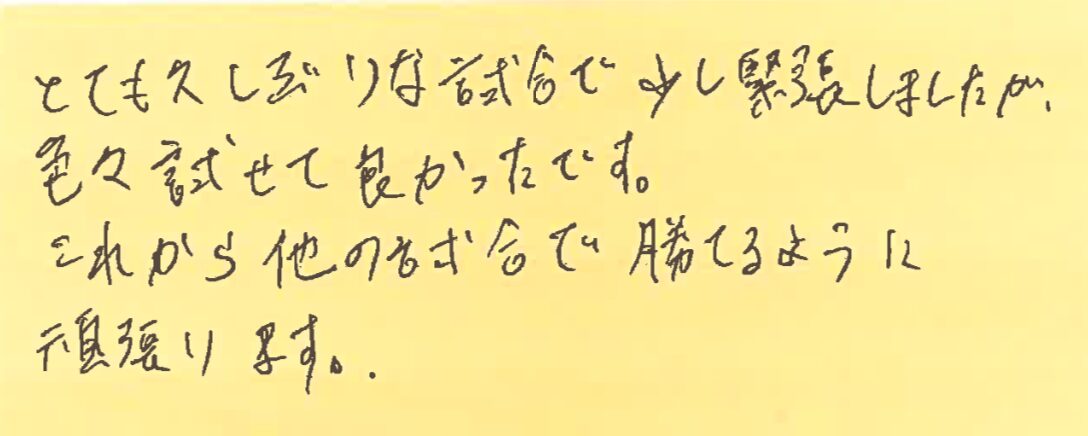 とても久しぶりな試合で少し緊張しましたが、
色々試せて良かったです。
これから他の試合で勝てるように
頑張ります。.